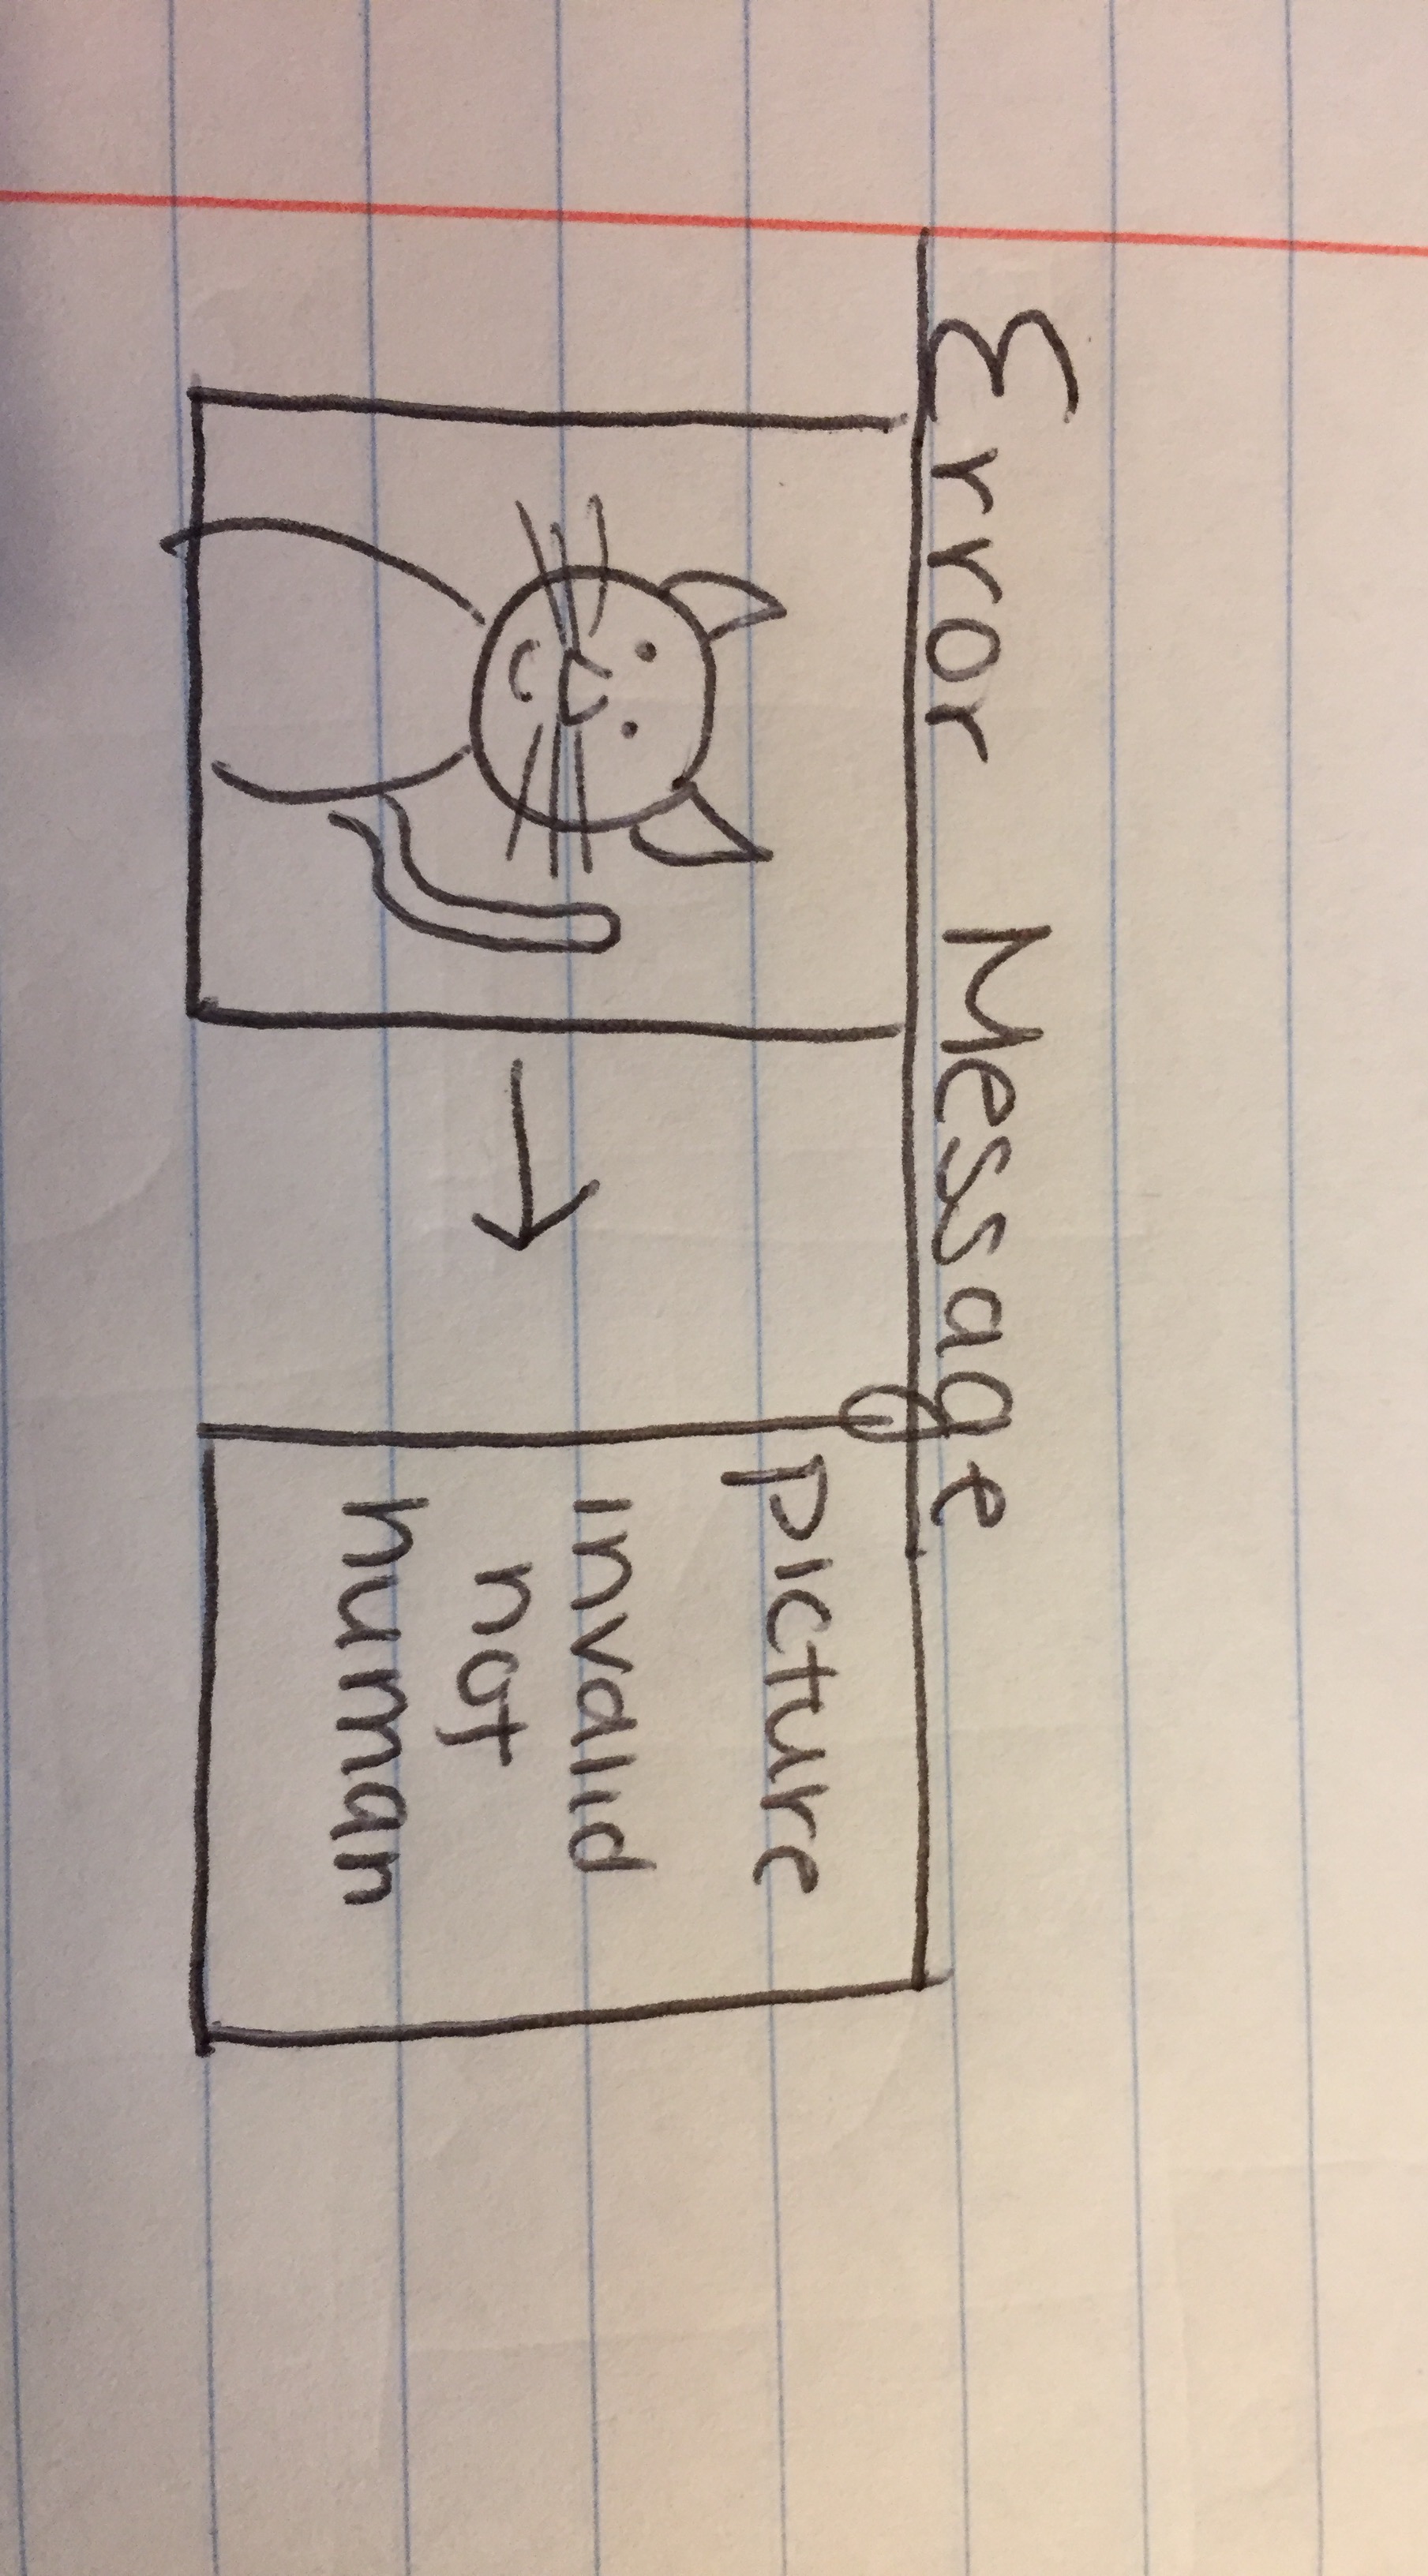 Error Message
picture
invalid
not
human